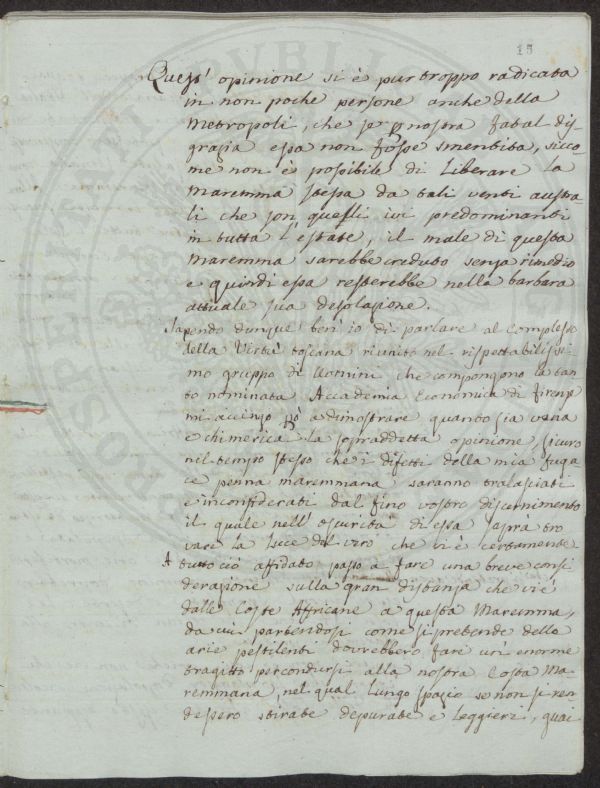 15
Quest' opinione si è pur troppo radicata
in non poche persone anche della
Metropoli, che se p nostra fatal dis-
grazia essa non fosse smentita, sicco-
me non è possibile di Liberare la
Maremma stessa da tali venti austra-
li che son quelli ivi predominanti
in tutta l'estate, il male di questa
Maremma sarebbe creduto senza rimedio
e quindi essa resterebbe nella barbara
attuale sua desolazione.
Sapendo dunque ben io di parlare al complesso
della Virtù toscana riunito nel rispettabilissi-
mo gruppo di Uomini che compongono la tan-
to nominata Accademia Economica di Firenze
mi accingo a dimostrare quanto sia vana
e chimerica la sopraddetta opinione sicuro
nel tempo stesso che i difetti della mia fuga-
ce penna maremmana saranno tralasciati
e inconsiderati dal fino vostro discernimento
il quale nell' oscurità di essa sapra tro
vare la Luce del vero che vi è certamente
A tutto ciò affidato passo a fare una breve consi
derazione sulla gran distanza che vi è
dalle Coste Affricane a questa Maremma,
da cui partendosi come si pretende delle
arie pestilenti dovrebbero fare un enorme
tragitto per condursi alla nostra Costa Ma-
remmana, nel qual lungo spazio se non si ren
dessero stirate depurate e Leggieri, quai